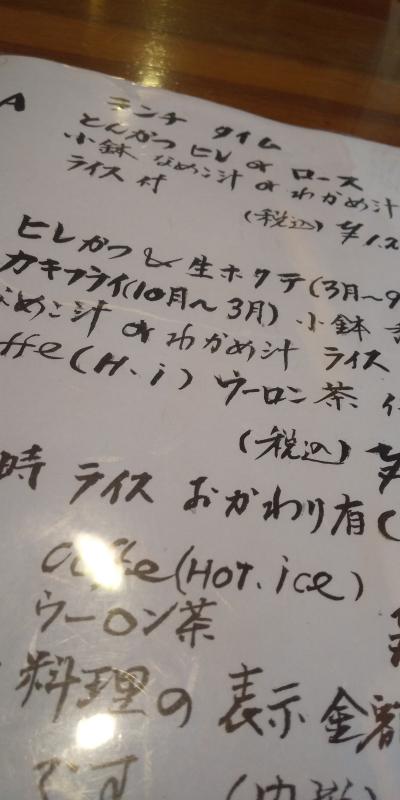 A ランチ タイム
とんかつ ヒレ or ロース
小鉢 なめこ汁 or わかめ汁
ライス 付
(税込) ¥1.2
ヒレかつ & 生ホタテ(3月〜9
カキフライ(10月〜3月) 小鉢
なめこ汁 or わかめ汁 ライス
ffe (H.i) ウーロン茶
(税込) ¥
時 ライス おかわり有(
Coffee (HOT. ice)
ウーロン茶
料理の 表示 金額
です (内税)